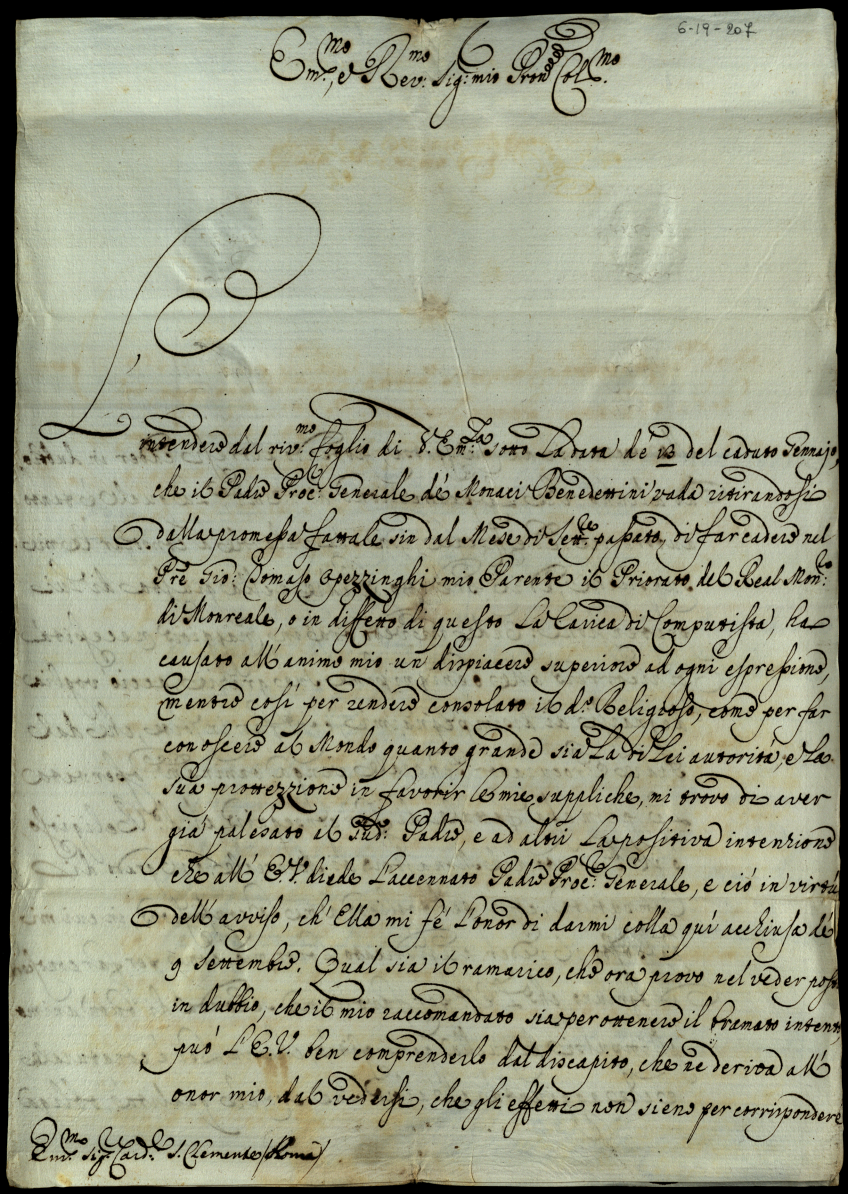 6-19-207
Em.mo, e Rev.mo Sig.r mio Pron Col.mo
L'
intendere dal riv.mo foglio di V. Em.za sotto la data de' 13 del caduto Gennajo,
che il Padre Proc.r Generale de' Monaci Benedettini vada ritirandosi
dalla promessa fattale sin dal Mese di Sett.re passato, di far cadere nel
Pre Gio: Tomaso Opezzinghi mio Parente il Priorato del Real Mon.ro
di Monreale, o in diffetto di questo la Carica di Computista, ha
causato all'animo mio un dispiacere superiore ad ogni espressione,
mentre così per rendere consolato il d.o Religioso, come per far
conoscere al Mondo quanto grande sia la di Lei autorità, e la
sua prottezzione in favorir le mie suppliche, mi trovo di aver
già palesato il Sud.o Padre, e ad altri la positiva intenzione
che all' E.V. diede l'accennato Padre Proc.r Generale, e ciò in virtù
dell'avviso, ch'Ella mi fé l'onor di darmi colla quì acchiusa de'
9 Settembre. Qual sia il ramarico, che ora provo nel veder posto
in dubbio, che il mio raccomandato sia per ottenere il bramato intento,
può l'E.V. ben comprenderlo dal discapito, che ne deriva all'
onor mio, dal vedersi, che gli effetti non sieno per corrispondere
Em.mo Sig.r Card.e S. Clemente (Roma)